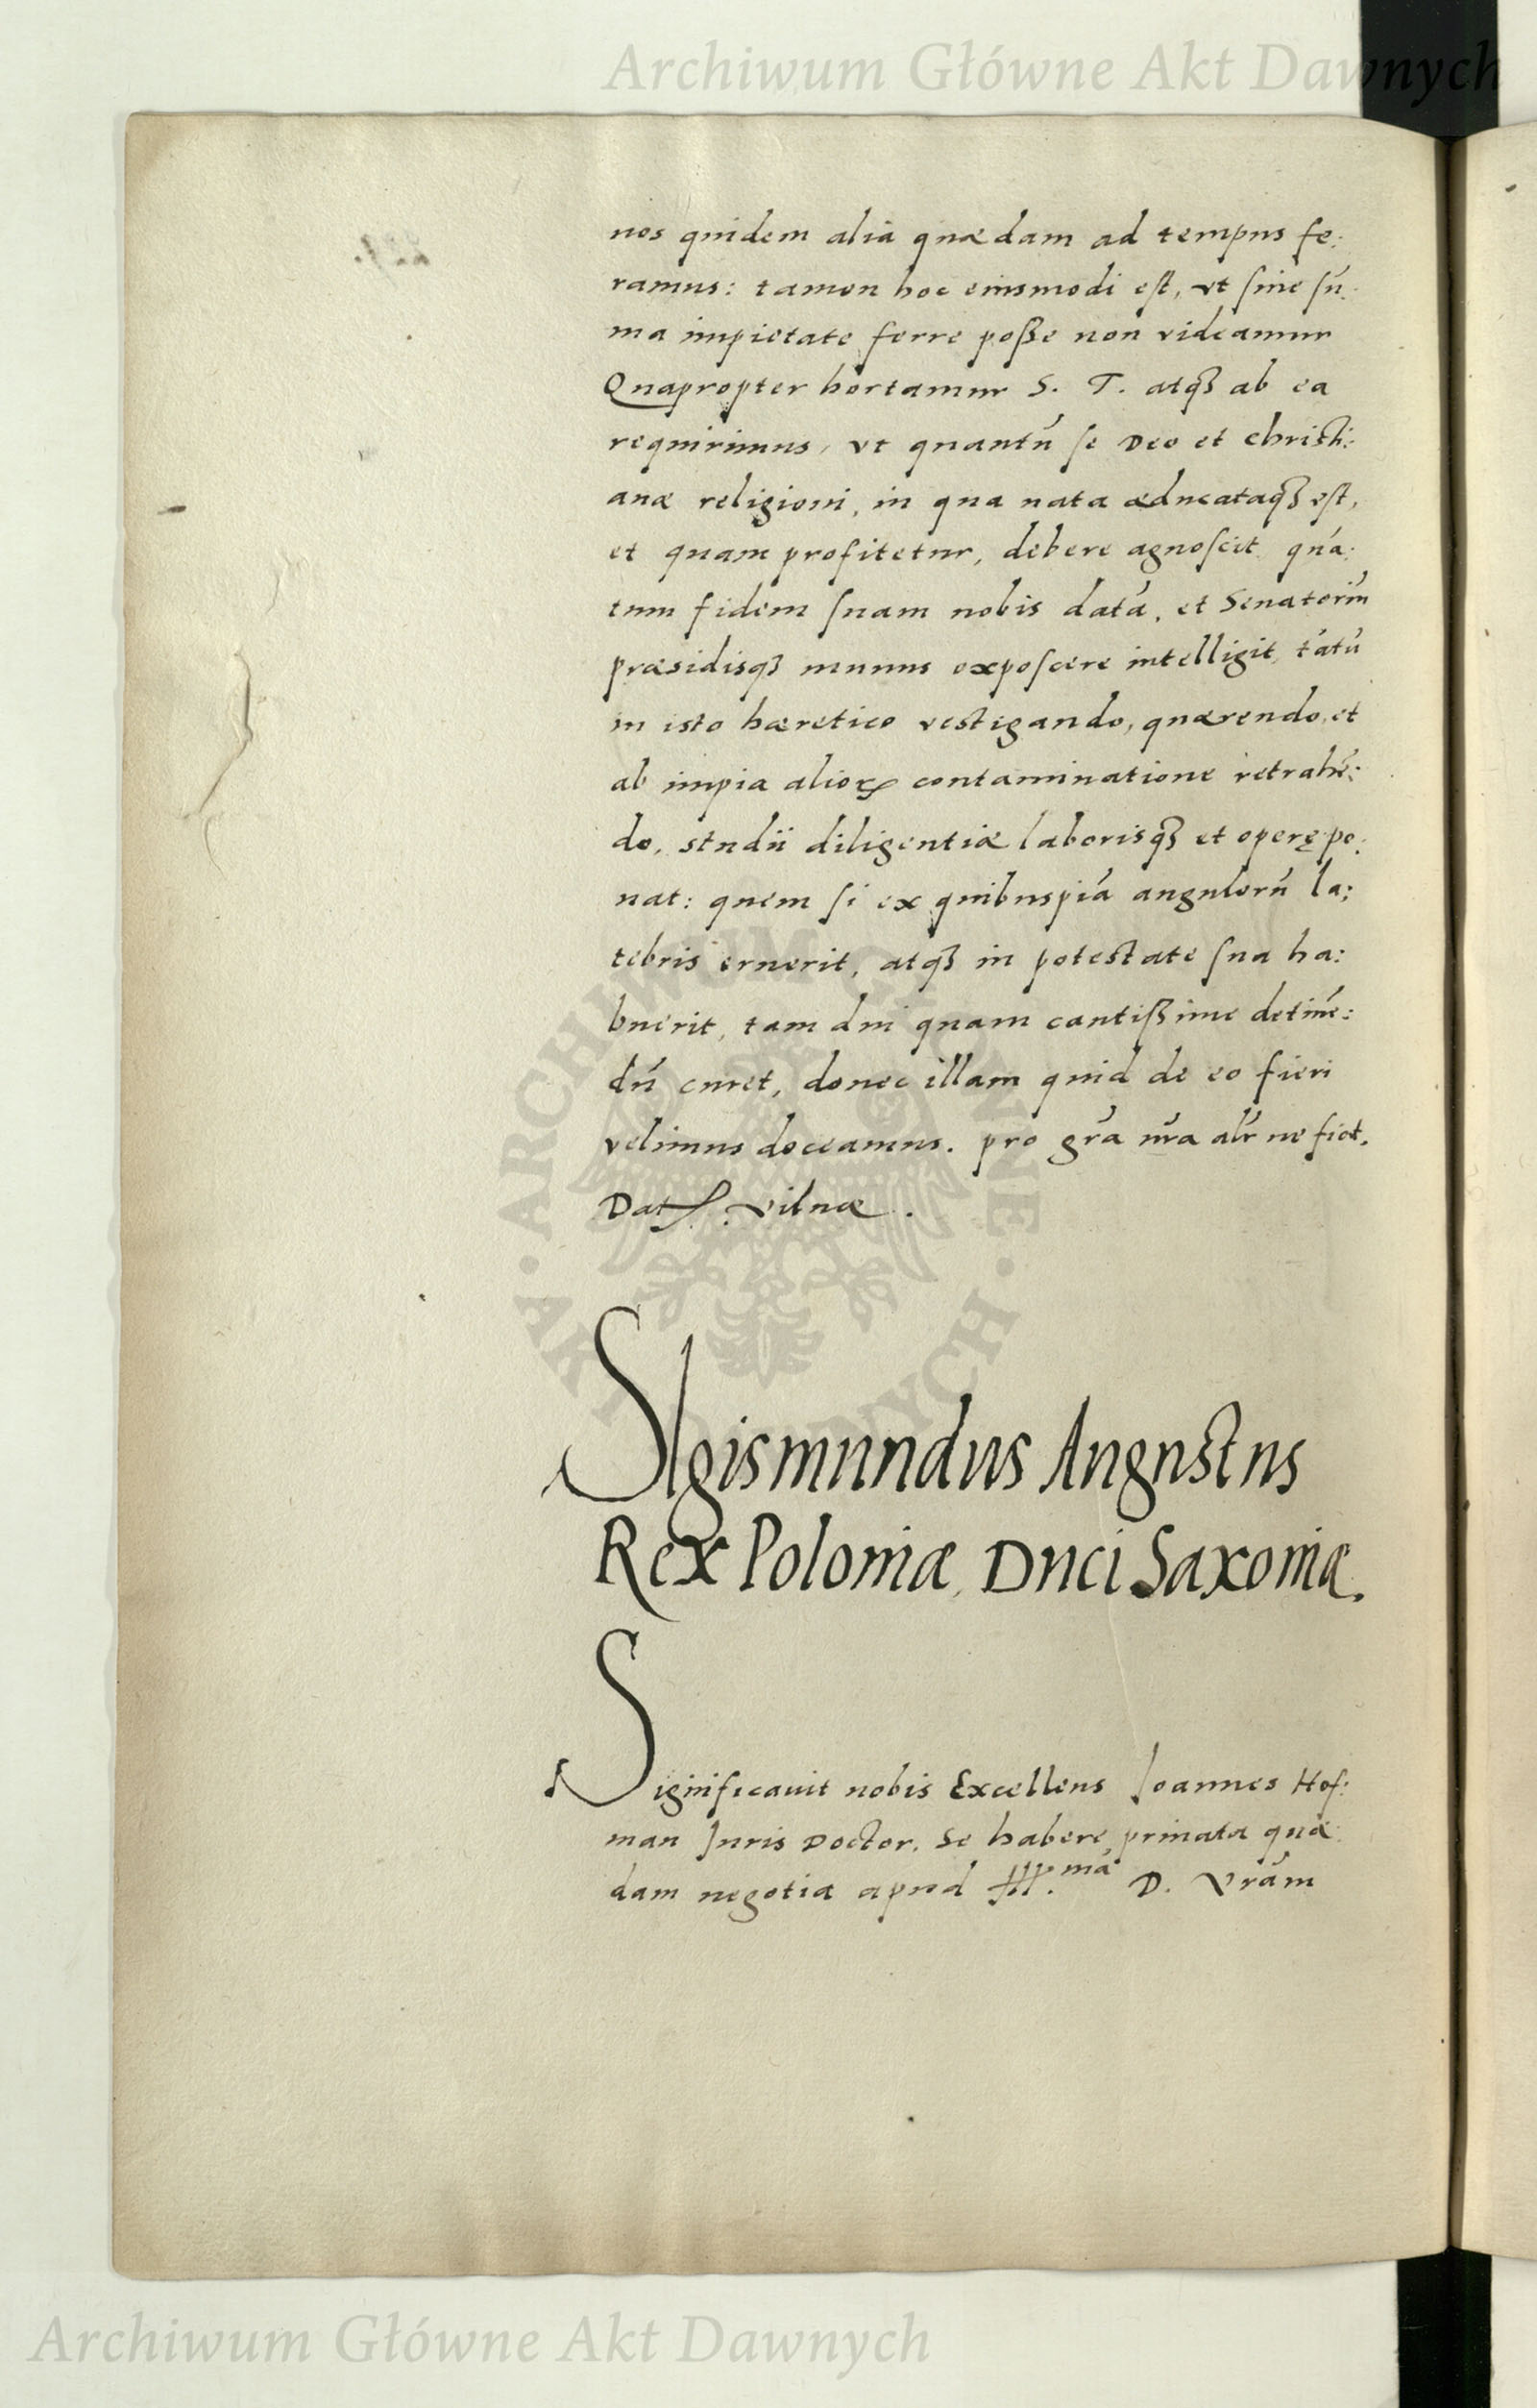 Archiwum Główne Akt Dawnych
nos quidem alia quædam ad tempus fe:
ramus: tamen hoc eiusmodi est, vt sine sū:
ma impietate ferre posse non videamur
Quapropter hortamur S. T. atqꝫ ab ea
requirimus, vt quantū se Deo et christi:
anæ religioni, in qua nata æducataqꝫ est,
et quam profitetur, debere agnoscit, quā:
tum fidem suam nobis datā, et Senatoriū
præsidisqꝫ munus exposcere intelligit, tātū
in isto hæretico vestigando, quærendo, et
ab impia alioꝝ contaminatione retrahē:
do, studii diligentiæ laborisqꝫ et operę po:
nat: quem si ex quibuspiā angulorū la:
tebris eruerit, atqꝫ in potestate sua ha:
buerit, tam diu quam cautissime detinē:
dū curet, donec illam quid de eo fieri
velimus doceamus. pro grā nrā alr̄ ne fict.
Dat. Vilnæ.
SIgismundus Augustus
Rex Poloniæ, Duci Saxoniæ.
Significauit nobis Excellens Ioannes Hof:
man Iuris Doctor, se habere priuata quæ:
dam negotia apud Ill.mā D. Vrām
ARCHIWUM GŁÓWNE · AKT DAWNYCH ·
Archiwum Główne Akt Dawnych